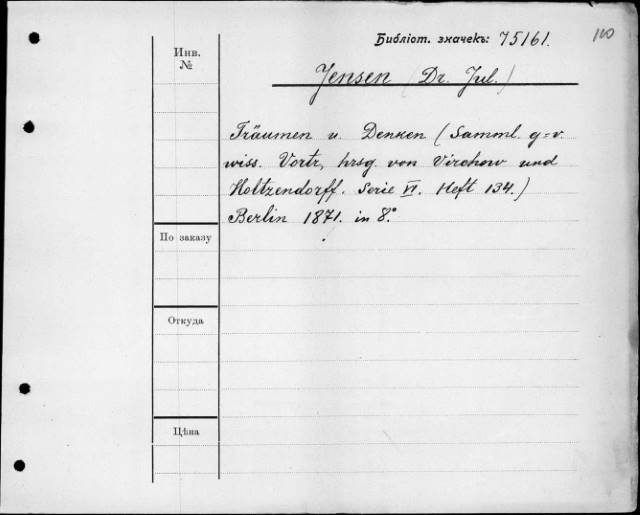 Библіот. значекъ: 75161.
110
Инв.
№
Jensen (Dr. Jul.)
Träumen u. Denken (Samml. g=v.
wiss. Vortr, hrsg von Virchow und
Holtzendorff. Serie VI. Heft 134.)
Berlin 1871. in 8.°
По заказу
Откуда
Цѣна